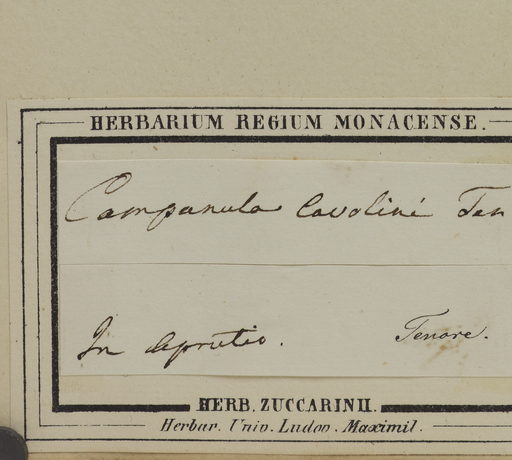 HERBARIUM REGIUM MONACENSE.
Campanula Cavolini Ten
In Aprutio.
Tenore.
HERB. ZUCCARINII.
Herbar. Univ. Ludov. Maximil.